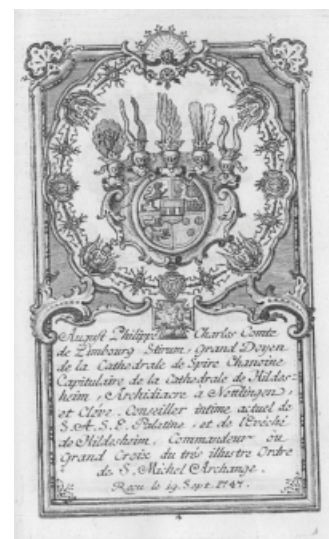 August Philippe Charles Comte
de Limbourg Stirum, Grand Doyen
de la Cathedrale de Spire Chanoine
Capitulaire de la Cathedrale de Hildes-
heim, Archidiacre a Nettlingen,
et Cloire. Conseiller intime actuel de
S. A. S. E. Palatine, et de l'Evéché
de Hildesheim, Commandeur ou
Grand Croix du trés illustre Ordre
de S. Michel Archange.
Reçu le 19. Sept. 1747.